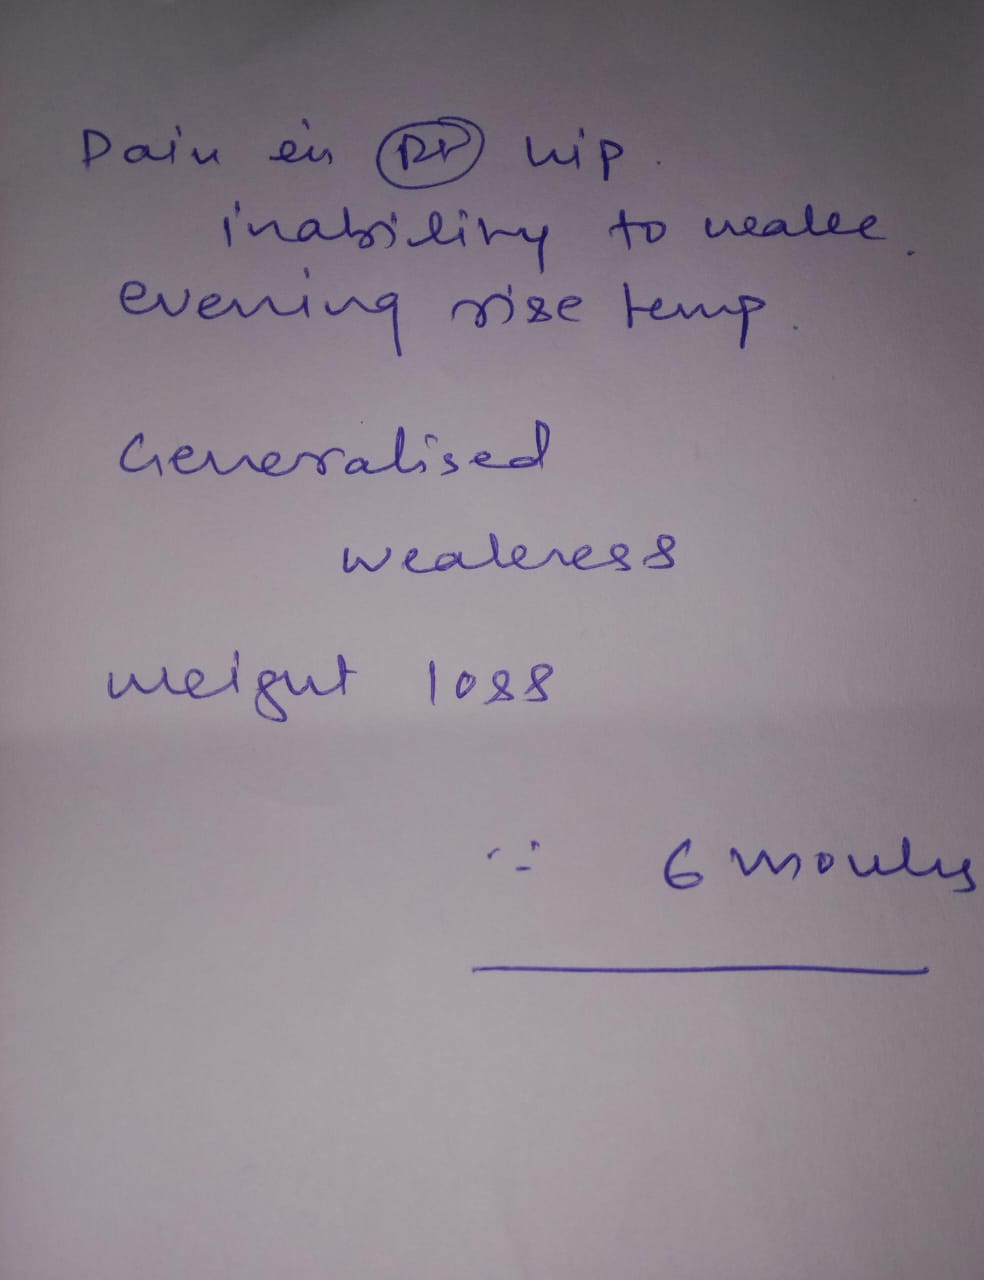 Pain in Rt hip.
inability to walk.
evening rise temp.
Generalised
weakness
weight loss
∵ 6 months